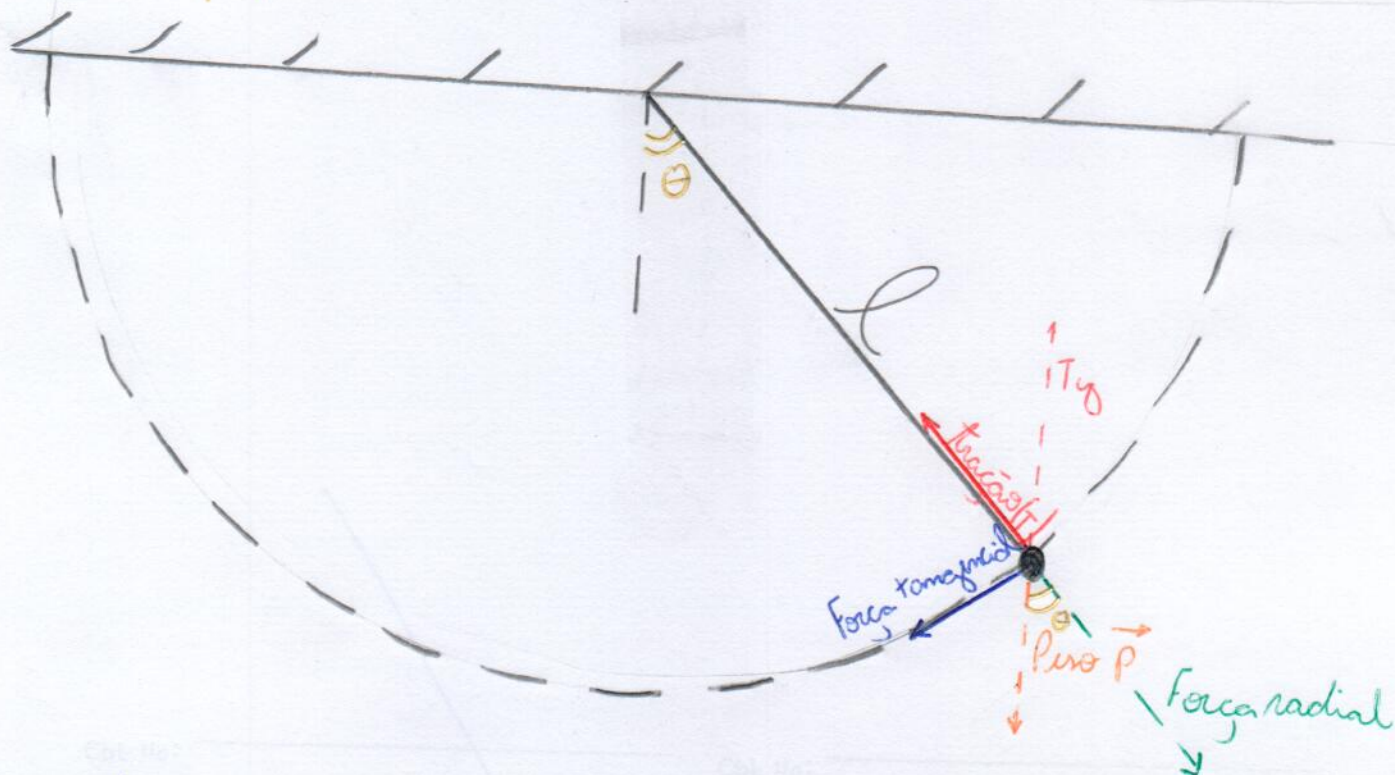 θ
l
Ty
tração(T)
Força tangencial
θ
Peso P
Força radial